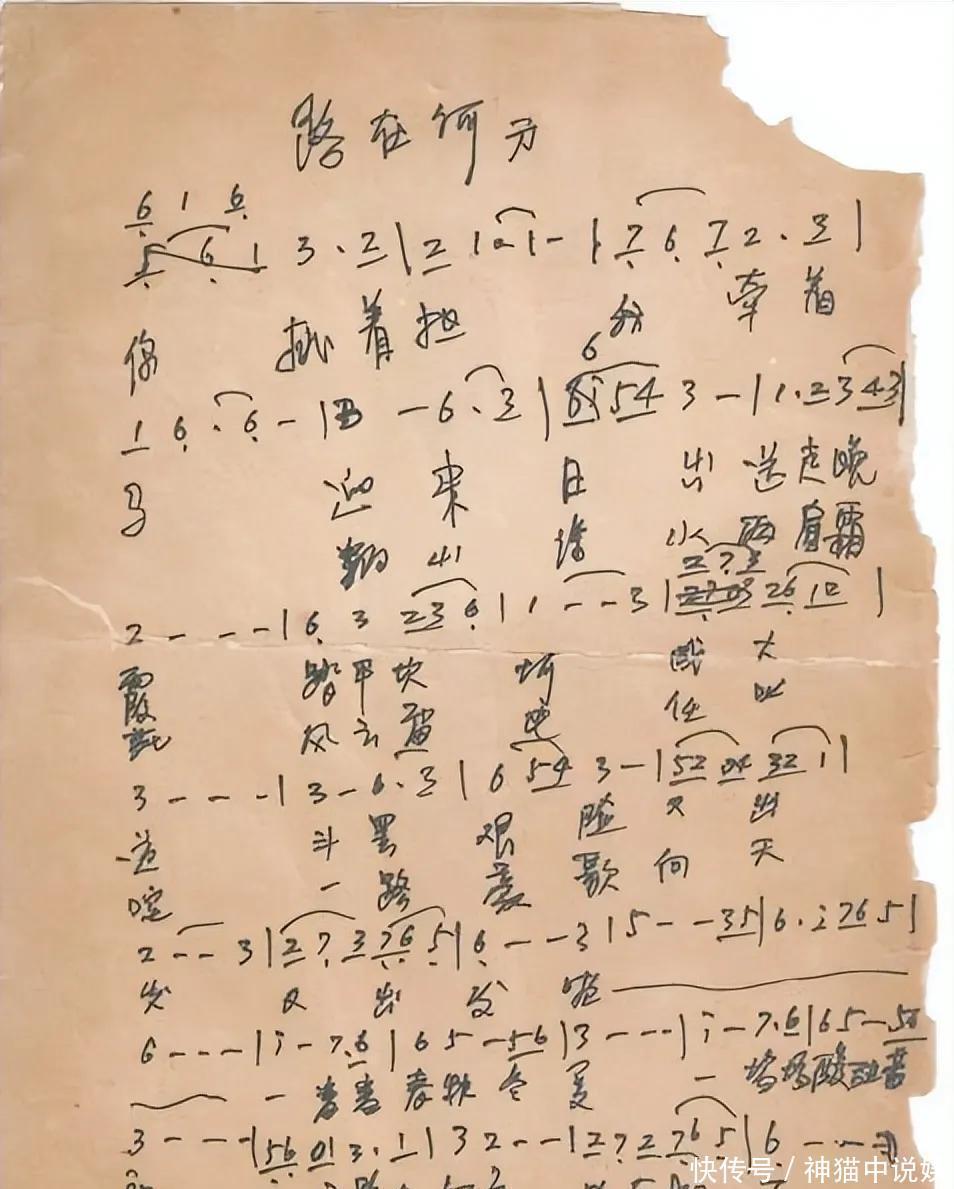 路在何方
6 1 6
5 6 1 3 · 2 | 2 1 · 1 - | 7 6 7 2 · 3 |
你 挑着担 我 牵着
6
1 6 · 6 - | 3 - 6 · 3 | 54 3 - | 1 · 2 3 43 |
马 迎来日出送走晚
翻山涉水两肩霜
2 7 3
2 - - - | 6 3 23 6 | 1 - - 3 | 26 12 |
霞 踏平坎坷 成大
花 风云雷电 任叱
3 - - - | 3 - 6 · 3 | 6 54 3 - | 52 32 1 |
道 斗罢艰险又出
咤 一路豪歌向天
2 - - 3 | 2 7 3 76 5 | 6 - - 3 | 5 - - 35 | 6 · i 76 5 |
发 又出发 啦
6 - - - | i - 7 · 6 | 6 5 - 56 | 3 - - - | i - 7 · 6 | 6 5 - 56
一番番春秋冬夏 一场场酸甜苦
3 - - - | 56 01 3 · 1 | 3 2 - - | 2 7 2 76 5 | 6 - - -
快传号 / 神猫中说娱